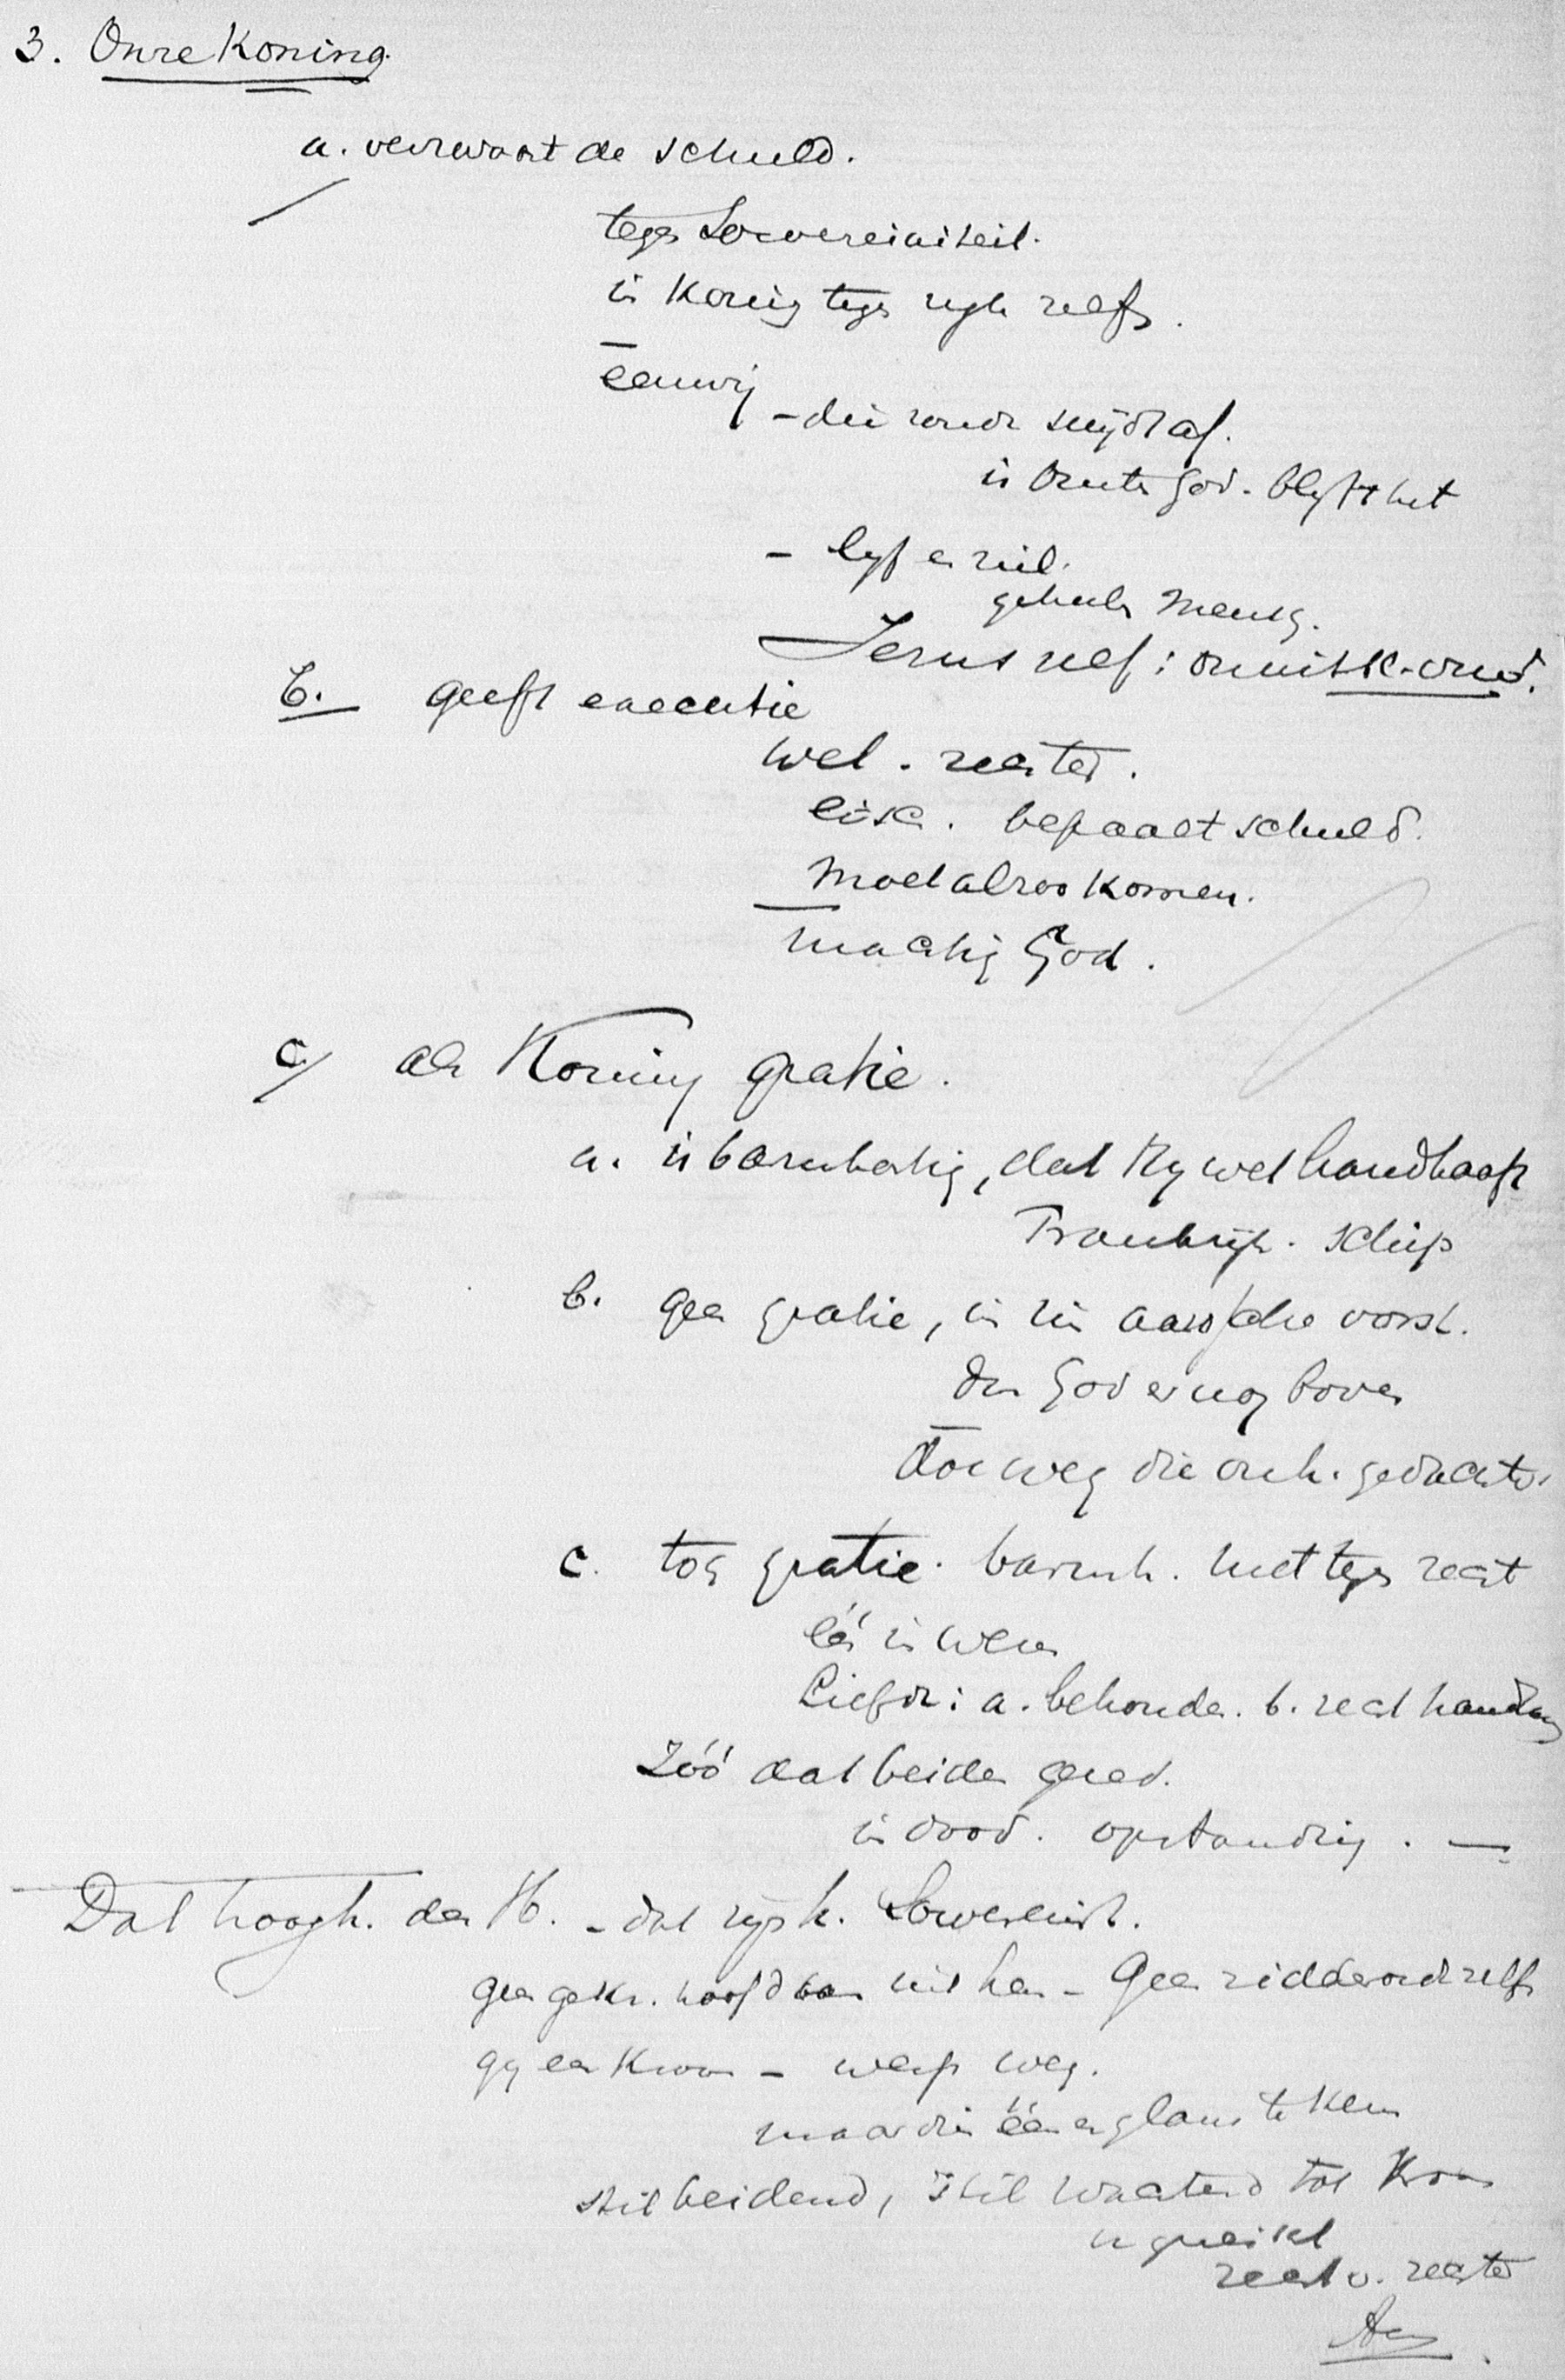 3. Onze Koning.
a. verzwaart de schuld.
tegen Souvereiniteit.
in Koning tegen rijk zelfs.
eeuwig
- die zonde snijdt af.
in Drieën. God. blijft het
- lijf en ziel.
geheele mensch.
Jezus zelf:
b. geeft executie
wet. rechter.
eisch. bepaalt schuld.
Moet alzoo komen.
machtig God.
c/ als Koning gratie.
a. is barmhartig, dat Hij wet handhaaft
Frankrijk. schip
b. geen gratie, in zin aardsche vorst.
den God er nog boven
Doe weg die onh. gedachte.
c. toch gratie. barmh. niet tegen recht
één in wezen
Liefde: a. behouden. b. recht handhav
Zóó dat beiden gered.
in dood. opstanding. —
Dat hoogh. der H. - dat rijk. Souvereinit.
geen gekr. hoofd kan uit hen - Geen ridderorde zelfs
gij een Kroon - werp weg.
maar die één en glans te Kem
stil beidend, stil wachtend tot Kroon
u gereikt
recht v. rechter
Amen